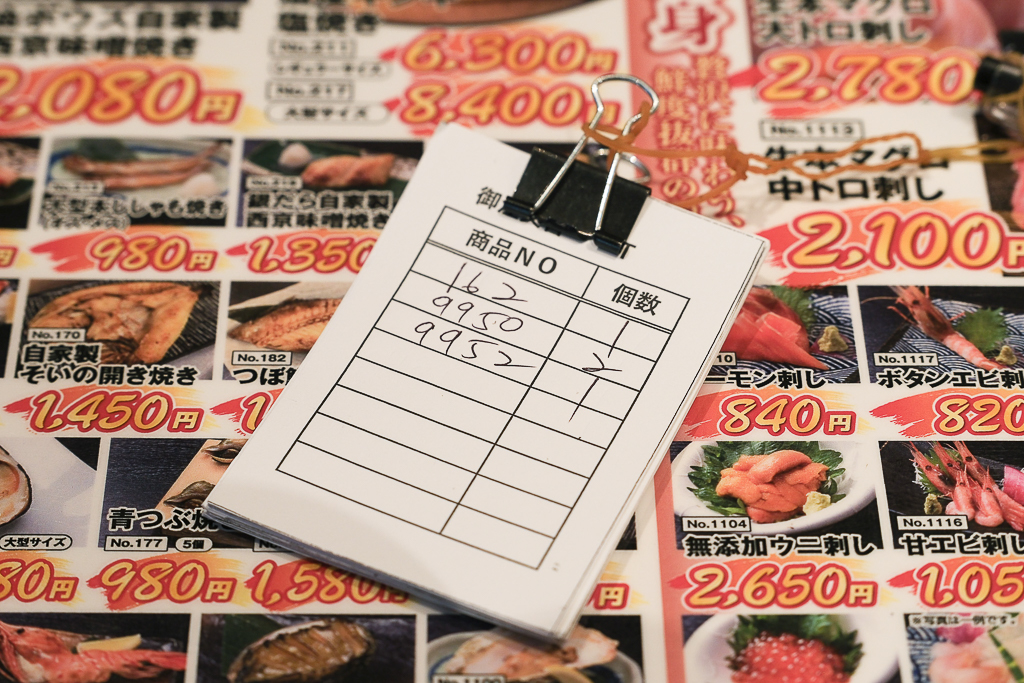 自家製
西京味噌焼き
2,080円
塩焼き
No.211
レギュラーサイズ
6,300円
No.217
大型サイズ
8,400円
身
大トロ刺し
2,780
No.1113
生本マグロ
中トロ刺し
2,100円
大型本ししゃも焼き
(オス)
980円
銀だら自家製
西京味噌焼き
1,350
御
商品NO 個数
162 1
9950 2
9952 1
No.170
自家製
そいの開き焼き
1,450円
No.182
つぼ
ーモン刺し
840円
No.1117
ボタンエビ刺し
820
大型サイズ
80円
青つぶ焼
No.177 5個
980円
1,580
円
No.1104
無添加ウニ刺し
2,650円
No.1116
甘エビ刺し
1,05
※写真は一例です。